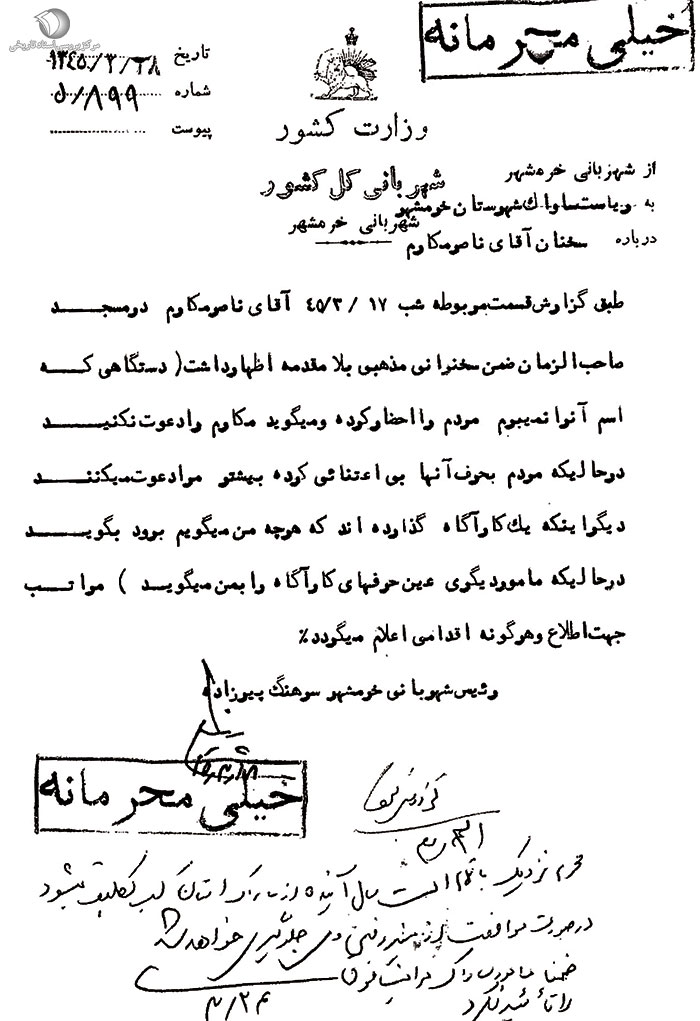 مرکز بررسی اسناد تاریخی
خیلی محرمانه
تاریخ ۱۳۴۵/۳/۲۸
شماره ۵/۸۹۹
پیوست
وزارت کشور
شهربانی کل کشور
شهربانی خرمشهر
از شهربانی خرمشهر
به ریاست ساواك شهرستان خرمشهر
درباره سخنان آقای ناصر مکارم
طبق گزارش قسمت مربوطه شب ۱۷ /۴۵/۳ آقای ناصر مکارم در مسجد
صاحب الزمان ضمن سخنرانی مذهبی بلا مقدمه اظهار داشت ( دستگاهی که
اسم آنرا نمیبرم مردم را احضار کرده و میگوید مکارم را دعوت نکنید
در حالیکه مردم بحرف آنها بی اعتنائی کرده بیشتر مرا دعوت میکنند
دیگر اینکه یك کارآگاه گذارده اند که هرچه من میگویم برود بگوید
در حالیکه مامور دیگری عین حرفهای کارآگاه را بمن میگوید ) مراتب
جهت اطلاع و هرگونه اقدامی اعلام میگردد٪
رئیس شهربانی خرمشهر سرهنگ پیرزاده
خیلی محرمانه
محرم نزدیک با تمام است سال آینده از ساواک استان کسب تکلیف میشود
در صورت موافقت از منبر رفتن وی جلوگیری خواهد شد
ضمنا مامورین ساواک مراتب فوق
را تائید نکرد
۳/۲۴